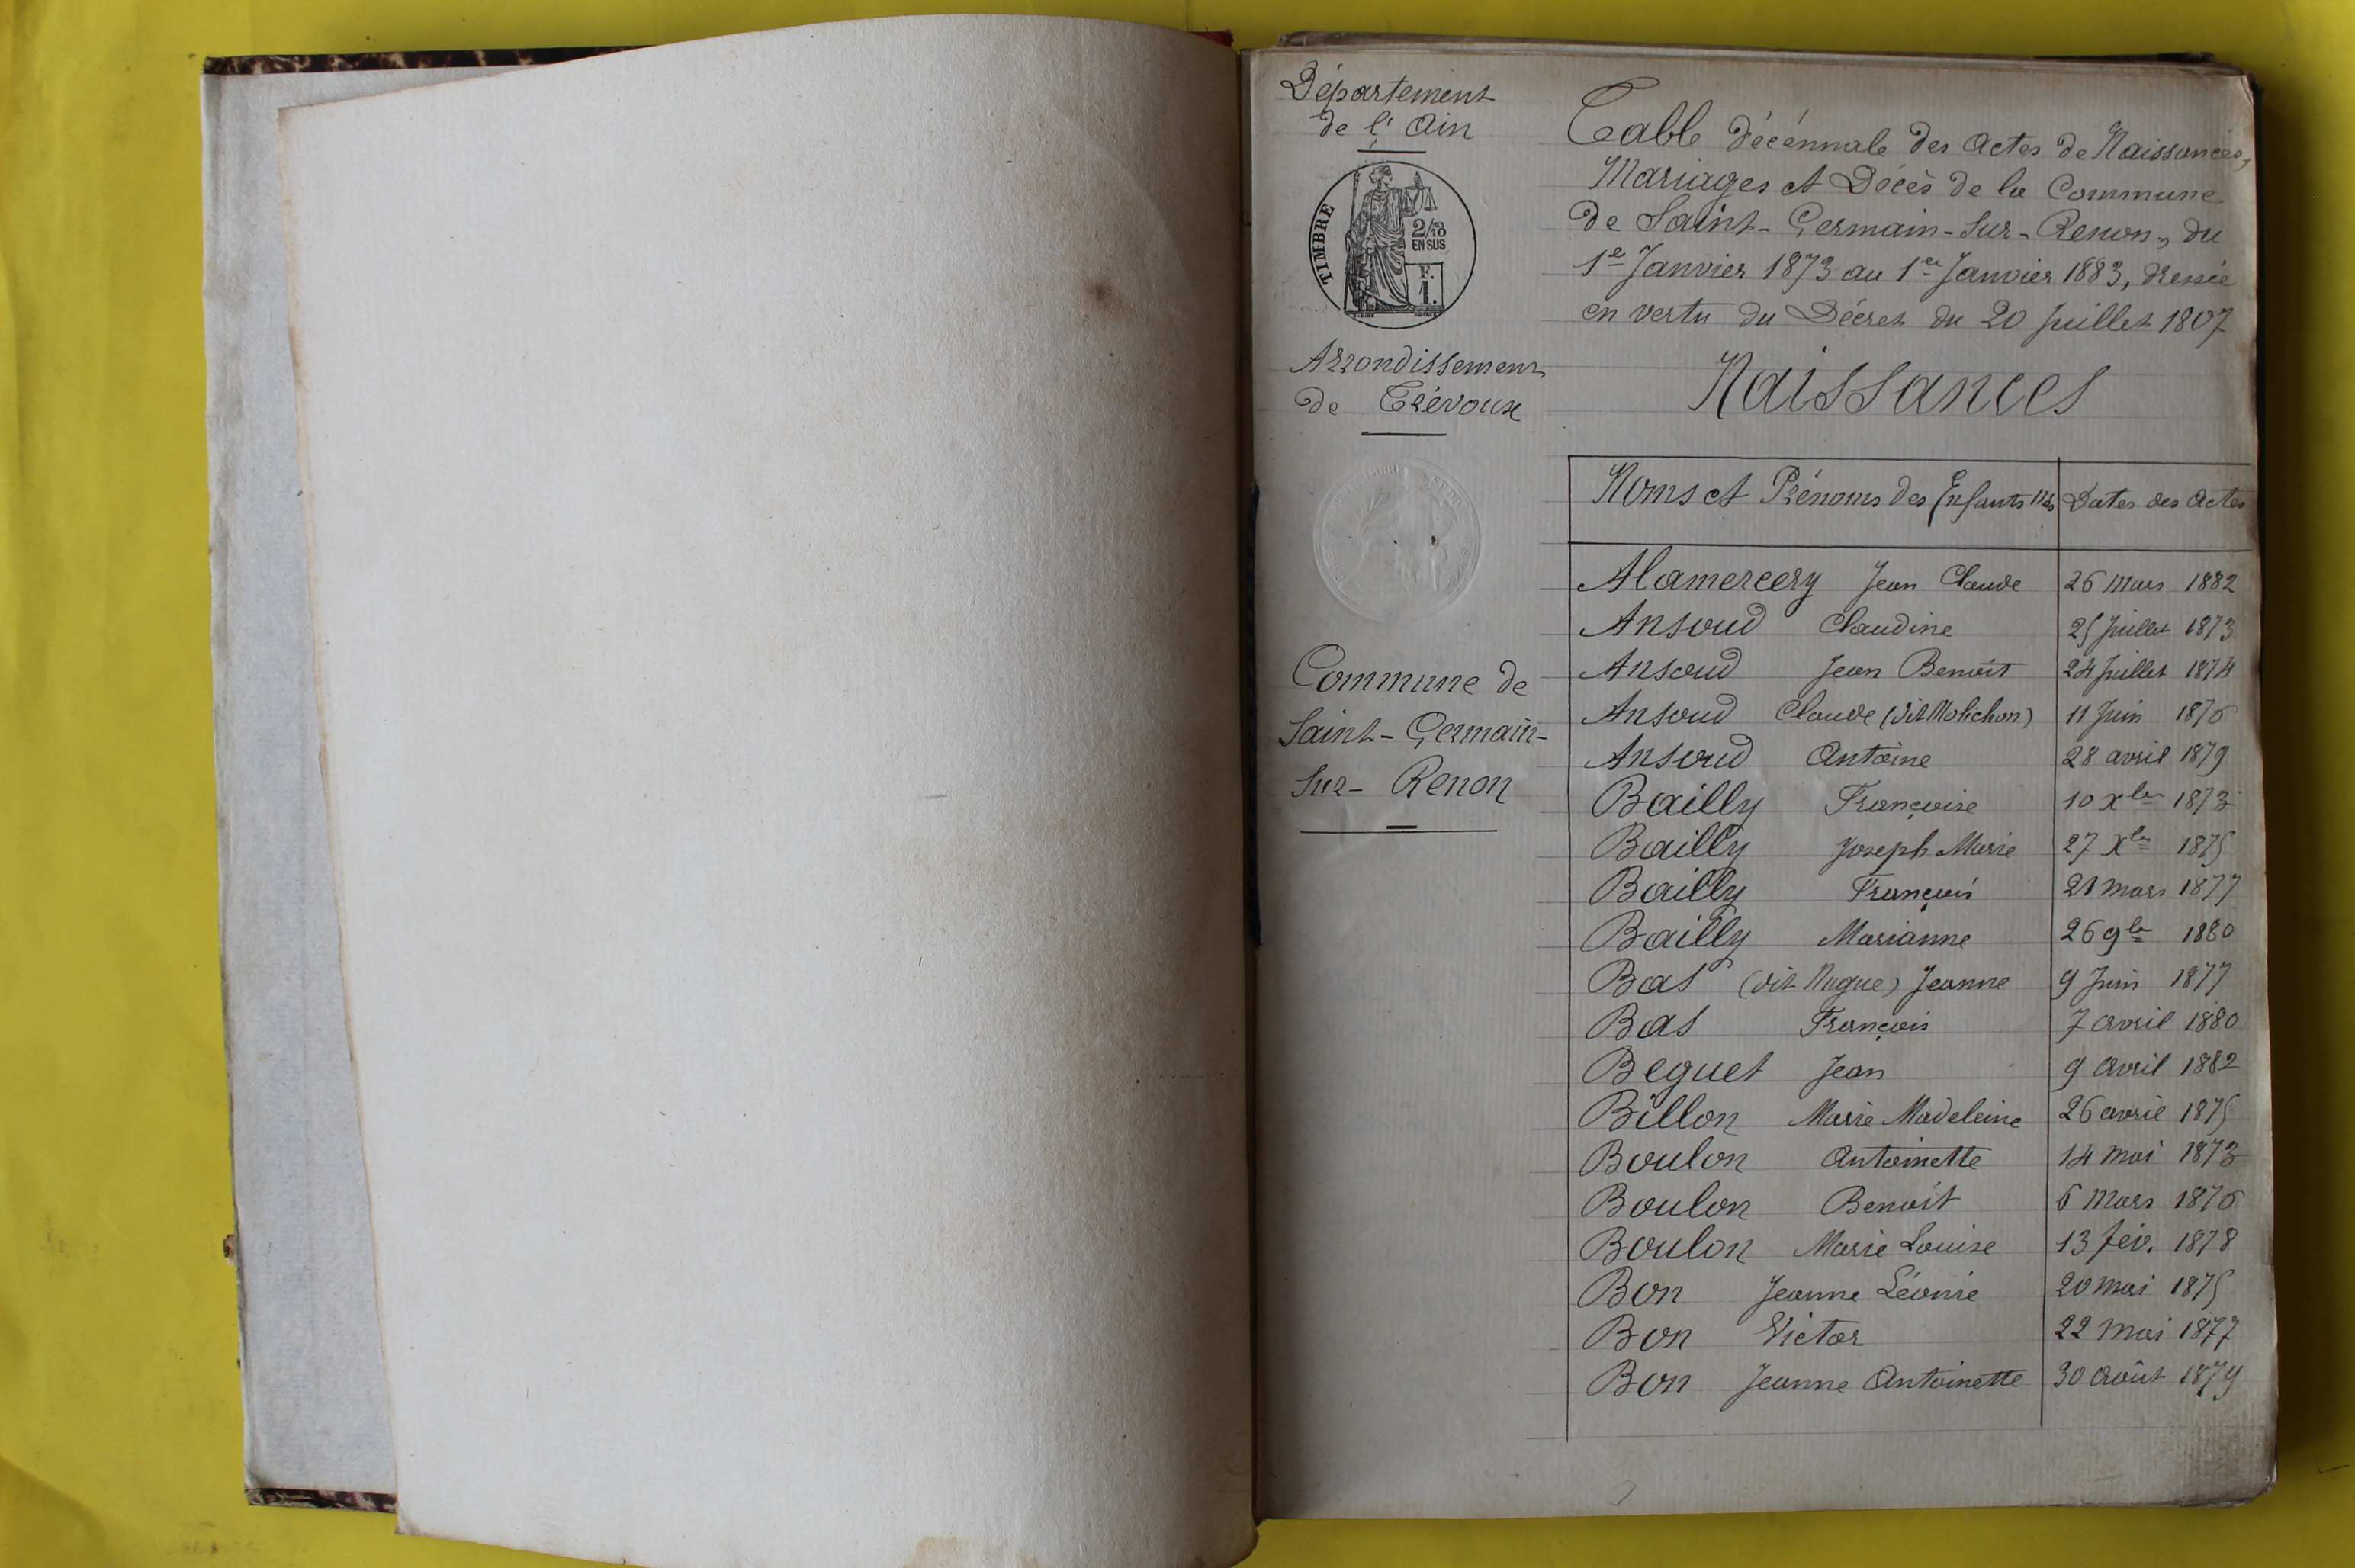 Département
de l'Ain
TIMBRE
2/10
EN SUS
F.
1.
Arrondissement
de Trévoux
Commune de
Saint-Germain-
Sur-Renon
Table décennale des Actes de Naissances,
Mariages et Décès de la Commune
de Saint-Germain-Sur-Renon, du
1er Janvier 1873 au 1er Janvier 1883, dressée
en vertu du Décret du 20 Juillet 1807
Naissances
Noms et Prénoms des Enfants nés Dates des Actes
Alamercery Jean Claude 26 mars 1882
Ansoud Claudine 25 Juillet 1873
Ansoud Jean Benoît 24 Juillet 1874
Ansoud Claude (dit Molichon) 11 Juin 1876
Ansoud Antoine 28 avril 1879
Bailly Françoise 10 Xbre 1873
Bailly Joseph Marie 27 Xbre 1875
Bailly François 21 mars 1877
Bailly Marianne 26 9bre 1880
Bas (dit Nugue) Jeanne 9 Juin 1877
Bas François 7 avril 1880
Beguet Jean 9 avril 1882
Billon Marie Madeleine 26 avril 1875
Boulon Antoinette 14 mai 1873
Boulon Benoit 6 mars 1876
Boulon Marie Louise 13 fév. 1878
Bon Jeanne Léonie 20 mai 1875
Bon Victor 22 mai 1877
Bon Jeanne Antoinette 30 Août 1879